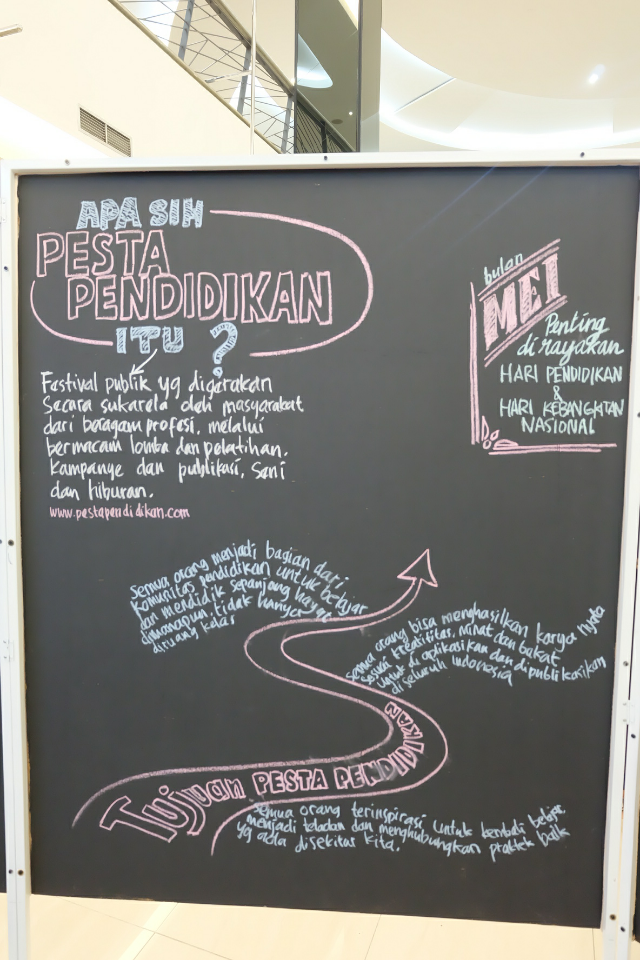 APA SIH
PESTA
PENDIDIKAN
ITU ?
Festival publik yg digerakan
Secara sukarela oleh masyarakat
dari beragam profesi, melalui
bermacam lomba dan pelatihan,
kampanye dan publikasi, seni
dan hiburan.
www.pestapendidikan.com
bulan
MEI
Penting
dirayakan
HARI PENDIDIKAN
&
HARI KEBANGKITAN
NASIONAL
Semua orang menjadi bagian dari
komunitas pendidikan untuk belajar
dan mendidik sepanjang hayat
dimanapun, tidak hanya
diruang kelas
Semua orang bisa menghasilkan karya nyata
sesuai kreatifitas, minat dan bakat
untuk di aplikasikan dan dipublikasikan
di seluruh Indonesia
Tujuan PESTA PENDIDIKAN
Semua orang terinspirasi untuk kembali belajar,
menjadi teladan dan menghubungkan praktek baik
yg ada disekitar kita.